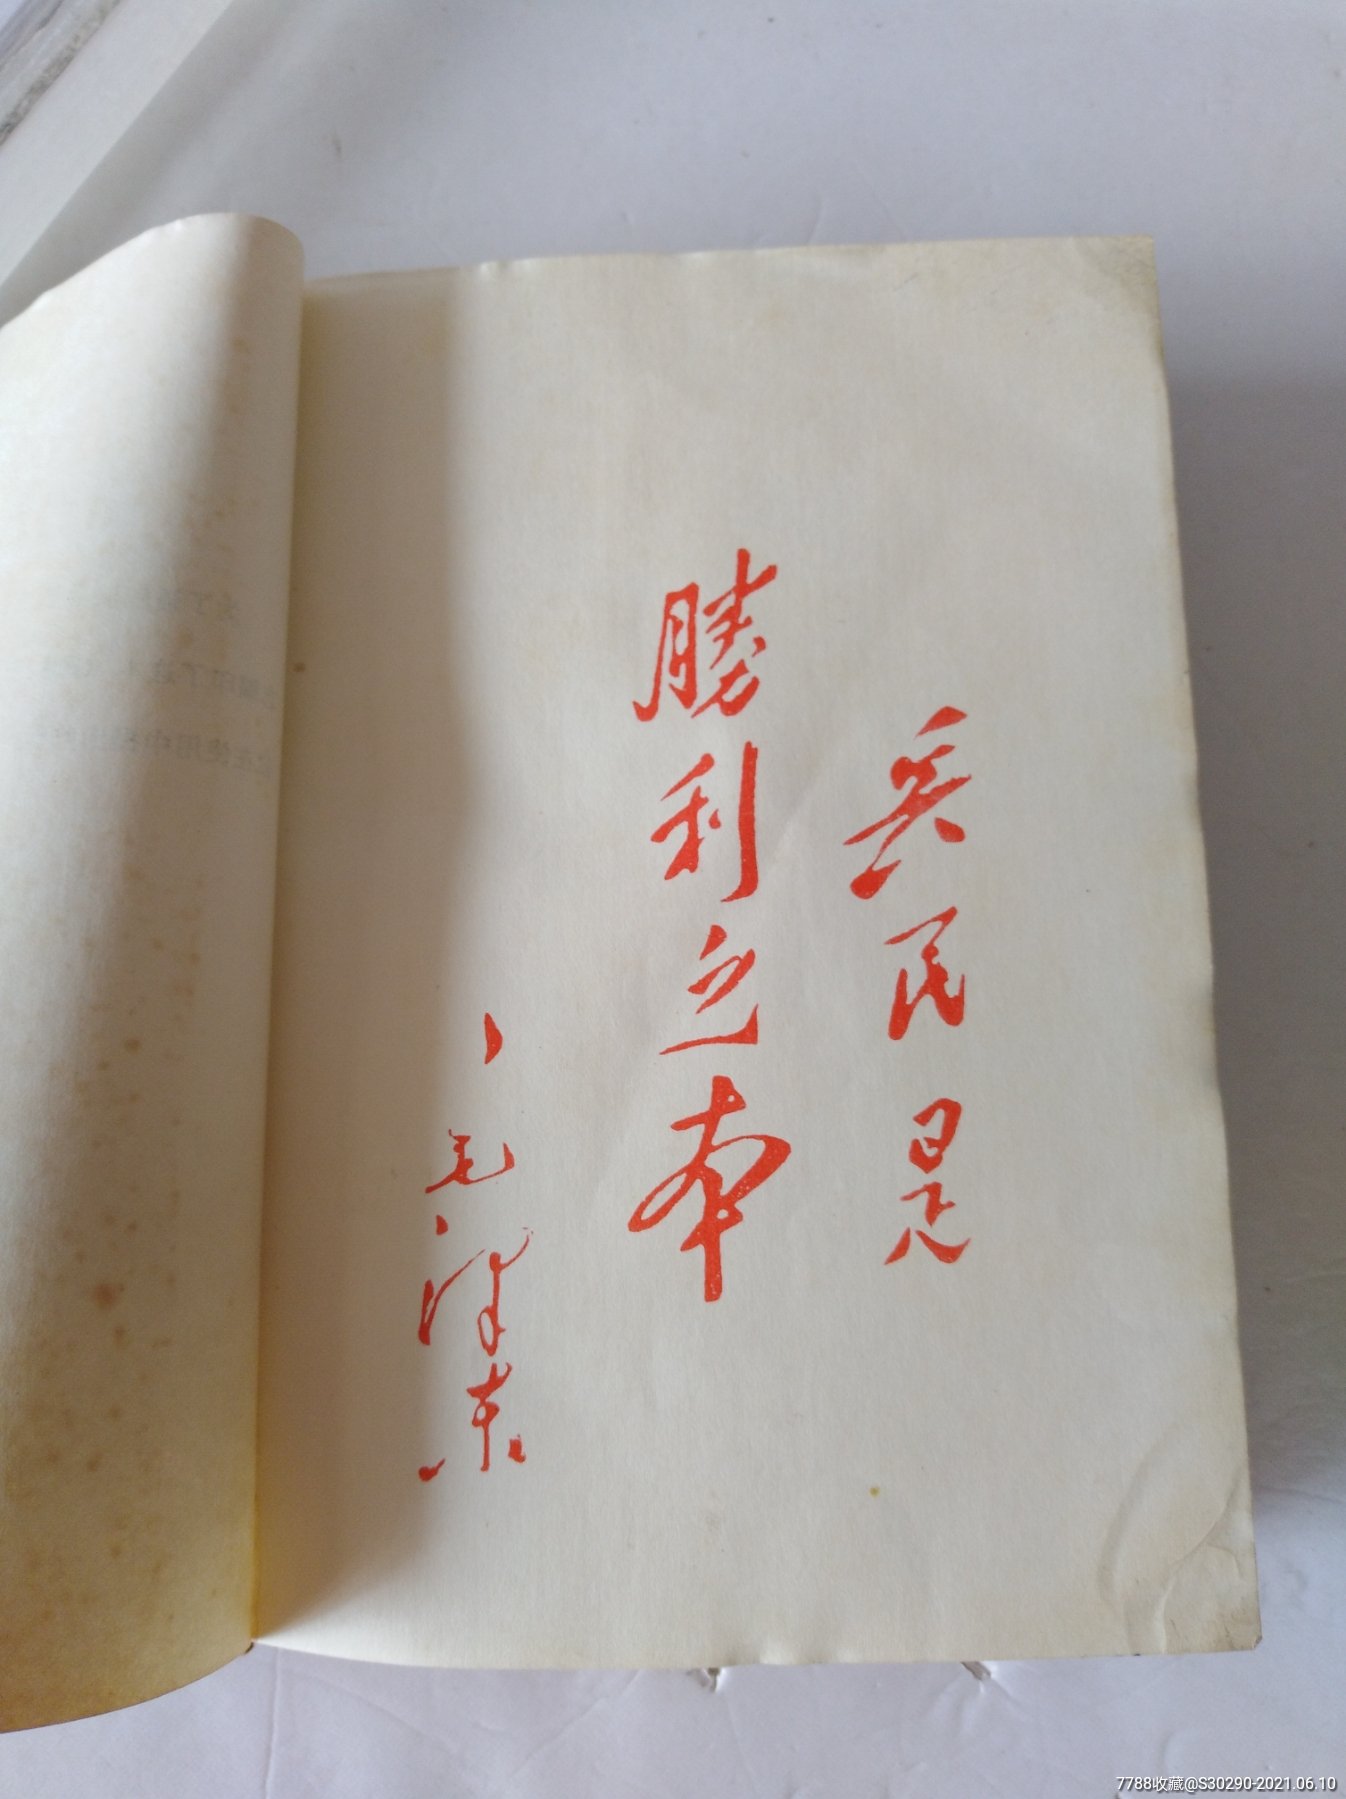 兵民是
勝利之本
毛澤東
7788收藏@S30290-2021.06.10